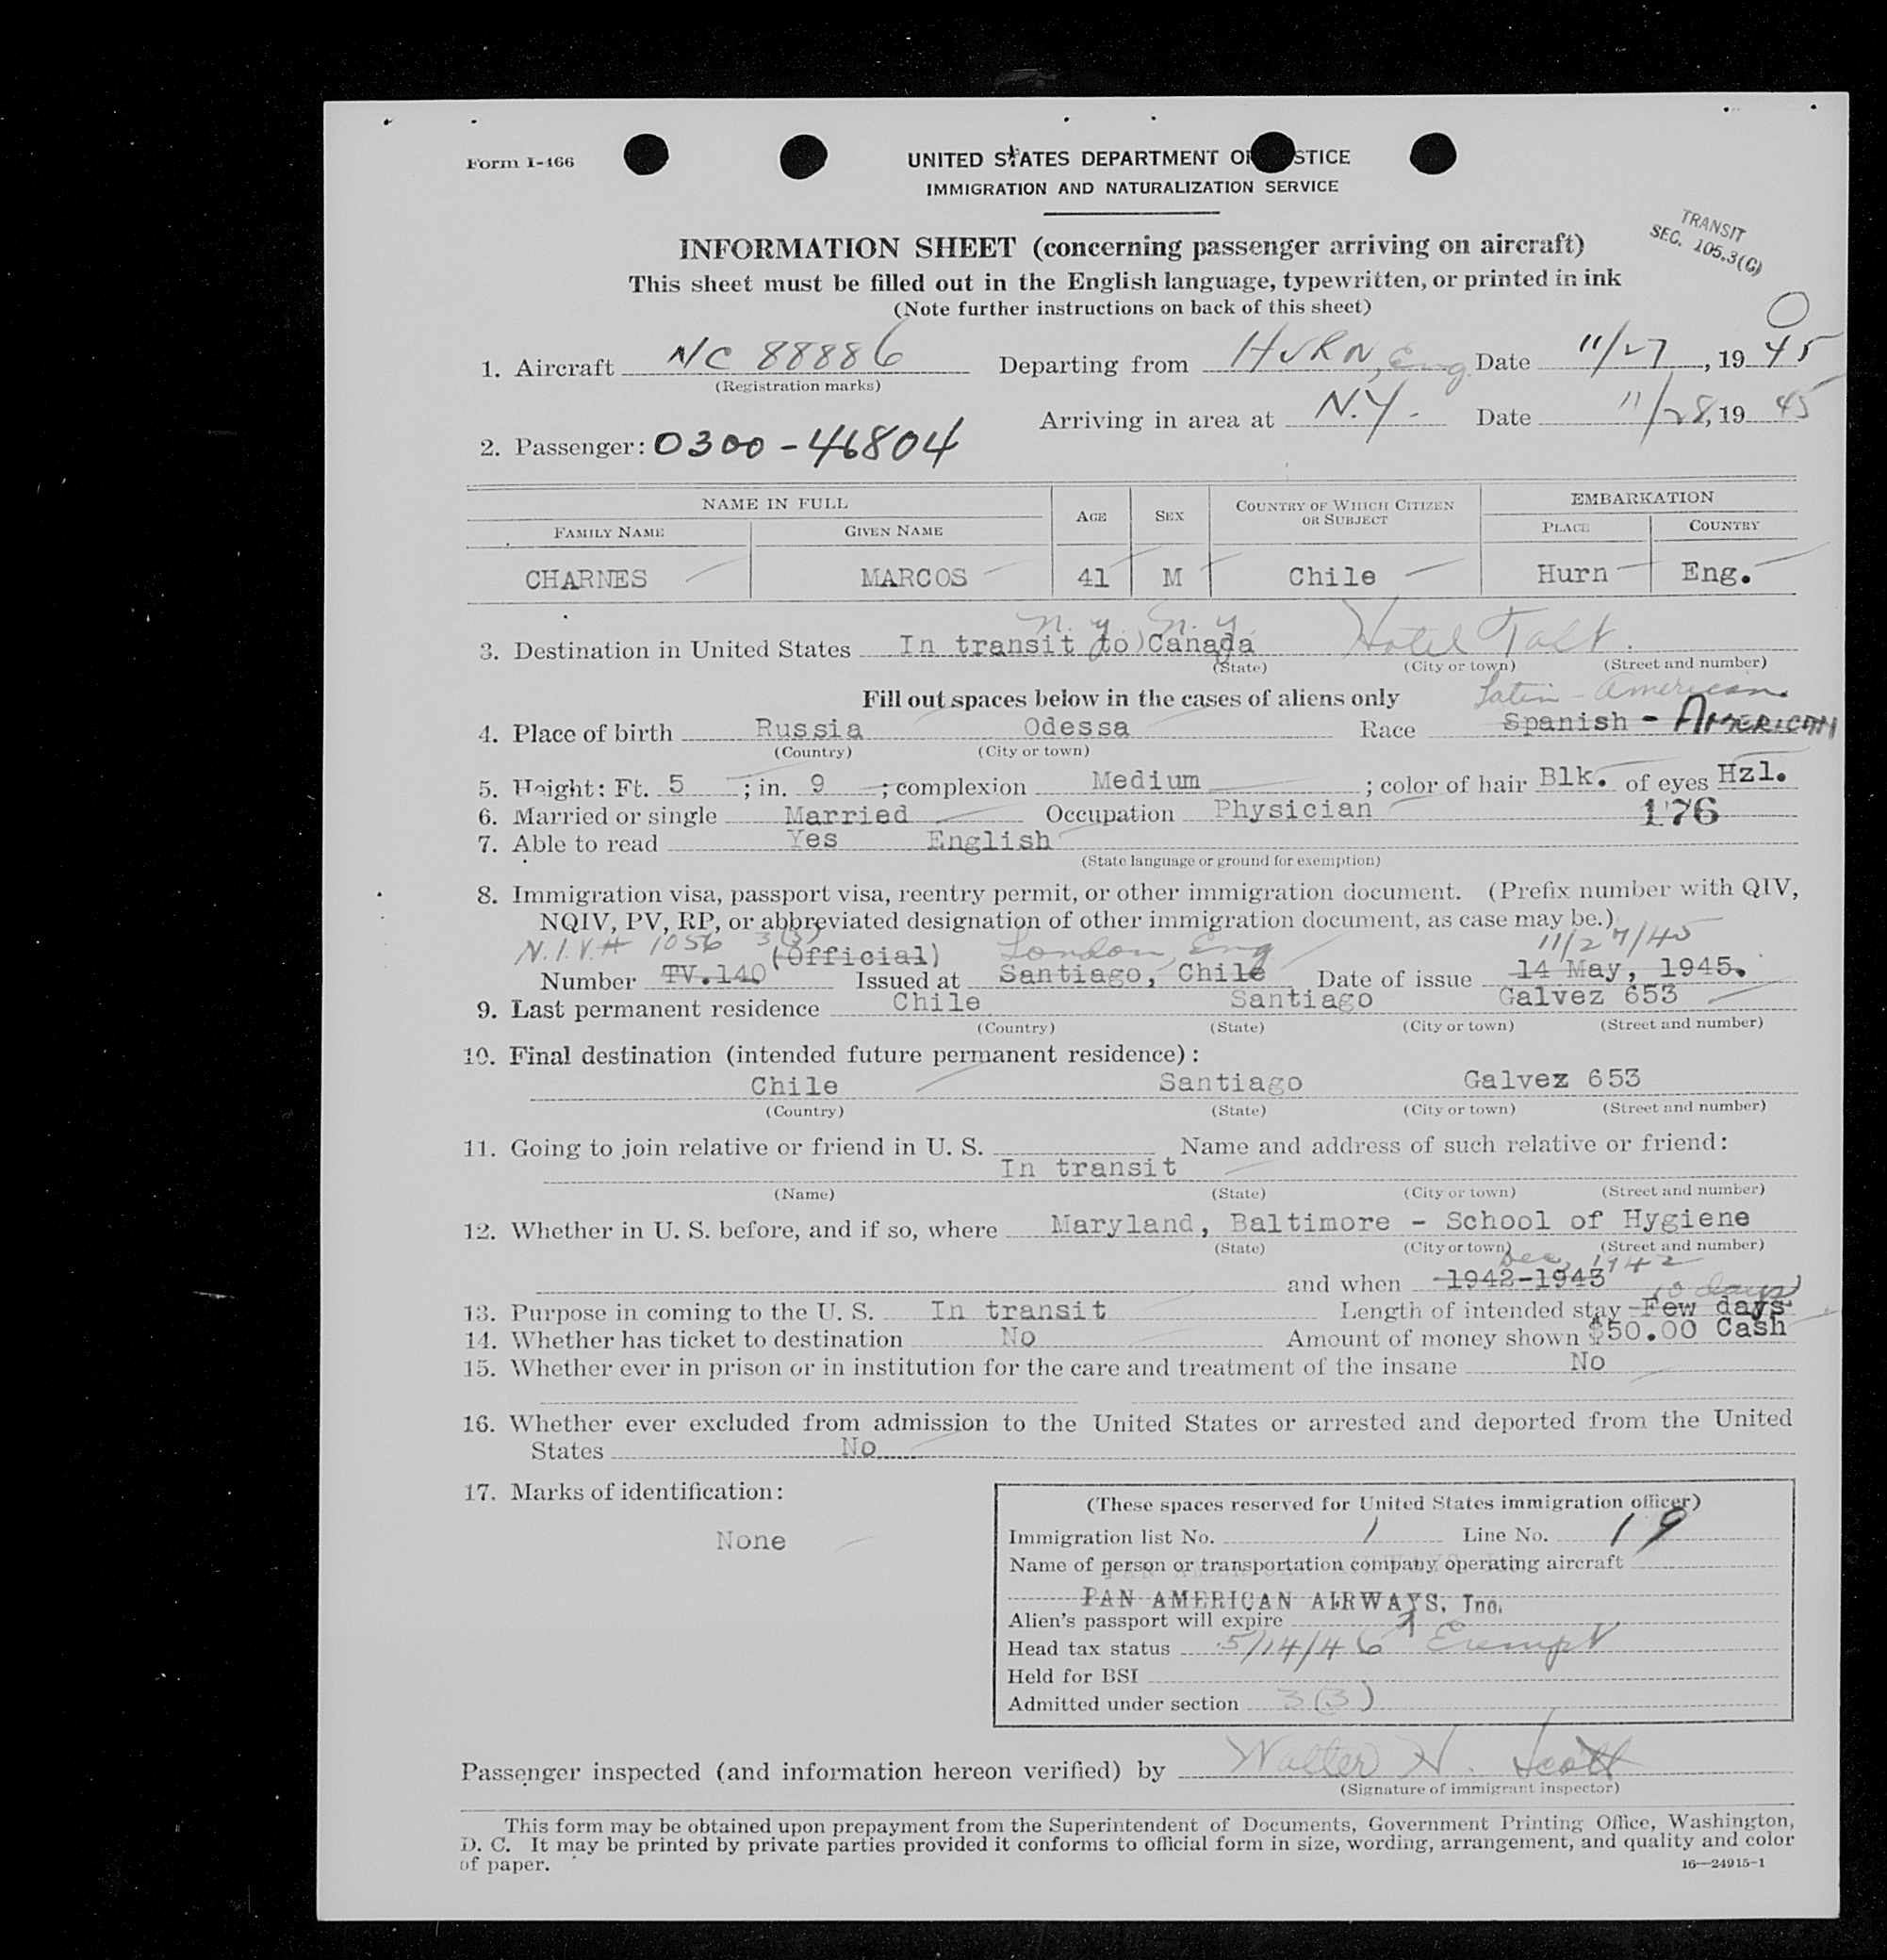 Form I-466
UNITED STATES DEPARTMENT OF JUSTICE
IMMIGRATION AND NATURALIZATION SERVICE
INFORMATION SHEET (concerning passenger arriving on aircraft)
TRANSIT
SEC. 105.3(G)
This sheet must be filled out in the English language, typewritten, or printed in ink
(Note further instructions on back of this sheet)
1. Aircraft NC 88886 Departing from HURN, Eng. Date 11/27, 1945
(Registration marks)
Arriving in area at N.Y. Date 11/28, 1945
2. Passenger: 0300-46804
NAME IN FULL AGE SEX COUNTRY OF WHICH CITIZEN OR SUBJECT EMBARKATION
FAMILY NAME GIVEN NAME PLACE COUNTRY
CHARNES MARCOS 41 M Chile Hurn Eng.
N.Y. N.Y.
3. Destination in United States In transit to Canada Hotel Taft.
(State) (City or town) (Street and number)
Fill out spaces below in the cases of aliens only Latin-American
4. Place of birth Russia Odessa Race Spanish - AMERICAN
(Country) (City or town)
5. Height: Ft. 5 ; in. 9 ; complexion Medium ; color of hair Blk. of eyes Hzl.
6. Married or single Married Occupation Physician 176
7. Able to read Yes English
(State language or ground for exemption)
8. Immigration visa, passport visa, reentry permit, or other immigration document. (Prefix number with QIV,
NQIV, PV, RP, or abbreviated designation of other immigration document, as case may be.)
N.I.V.# 1056 3(3) London, Eng 11/27/45
(Official)
Number TV.140 Issued at Santiago, Chile Date of issue 14 May, 1945.
9. Last permanent residence Chile Santiago Galvez 653
(Country) (State) (City or town) (Street and number)
10. Final destination (intended future permanent residence):
Chile Santiago Galvez 653
(Country) (State) (City or town) (Street and number)
11. Going to join relative or friend in U. S. Name and address of such relative or friend:
In transit
(Name) (State) (City or town) (Street and number)
12. Whether in U. S. before, and if so, where Maryland, Baltimore - School of Hygiene
(State) (City or town) (Street and number)
Dec, 1942
and when 1942-1943
10 days
13. Purpose in coming to the U. S. In transit Length of intended stay Few days
14. Whether has ticket to destination No Amount of money shown $50.00 Cash
15. Whether ever in prison or in institution for the care and treatment of the insane No
16. Whether ever excluded from admission to the United States or arrested and deported from the United
States No
17. Marks of identification:
None
(These spaces reserved for United States immigration officer)
Immigration list No. 1 Line No. 19
Name of person or transportation company operating aircraft
PAN AMERICAN AIRWAYS, Inc.
Alien's passport will expire
Head tax status 5/14/46 Exempt
Held for BSI
Admitted under section 3(3)
Passenger inspected (and information hereon verified) by Walter H. Scott
(Signature of immigrant inspector)
This form may be obtained upon prepayment from the Superintendent of Documents, Government Printing Office, Washington,
D. C. It may be printed by private parties provided it conforms to official form in size, wording, arrangement, and quality and color
of paper.
16—24915-1